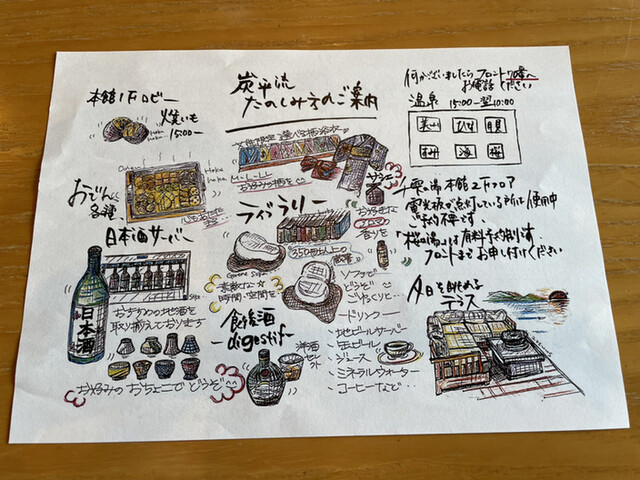 本館1Fロビー
焼いも
15:00〜
おでん
各種、
日本酒サーバー
日本酒
おすすめの地酒を
取り揃えております
お好みのおちょこでどうぞ
炭平流
たのしみ方のご案内
M・L・LL
ライブラリー
350冊以上の
素敵な☆
時間・空間を
ソファで
どうぞ
ごゆるりと…
食後酒
-digestif-
洋酒
ドリンク
、地ビールサーバー
、缶ビール
、ジュース
、ミネラルウォーター
、コーヒーなど…
何かございましたらフロント9番へ
お電話ください
温泉 15:00-翌10:00
電光板が点灯している所は使用中
ご予約不要です。
フロントまでお申し付けください
夕日を眺める
テラス